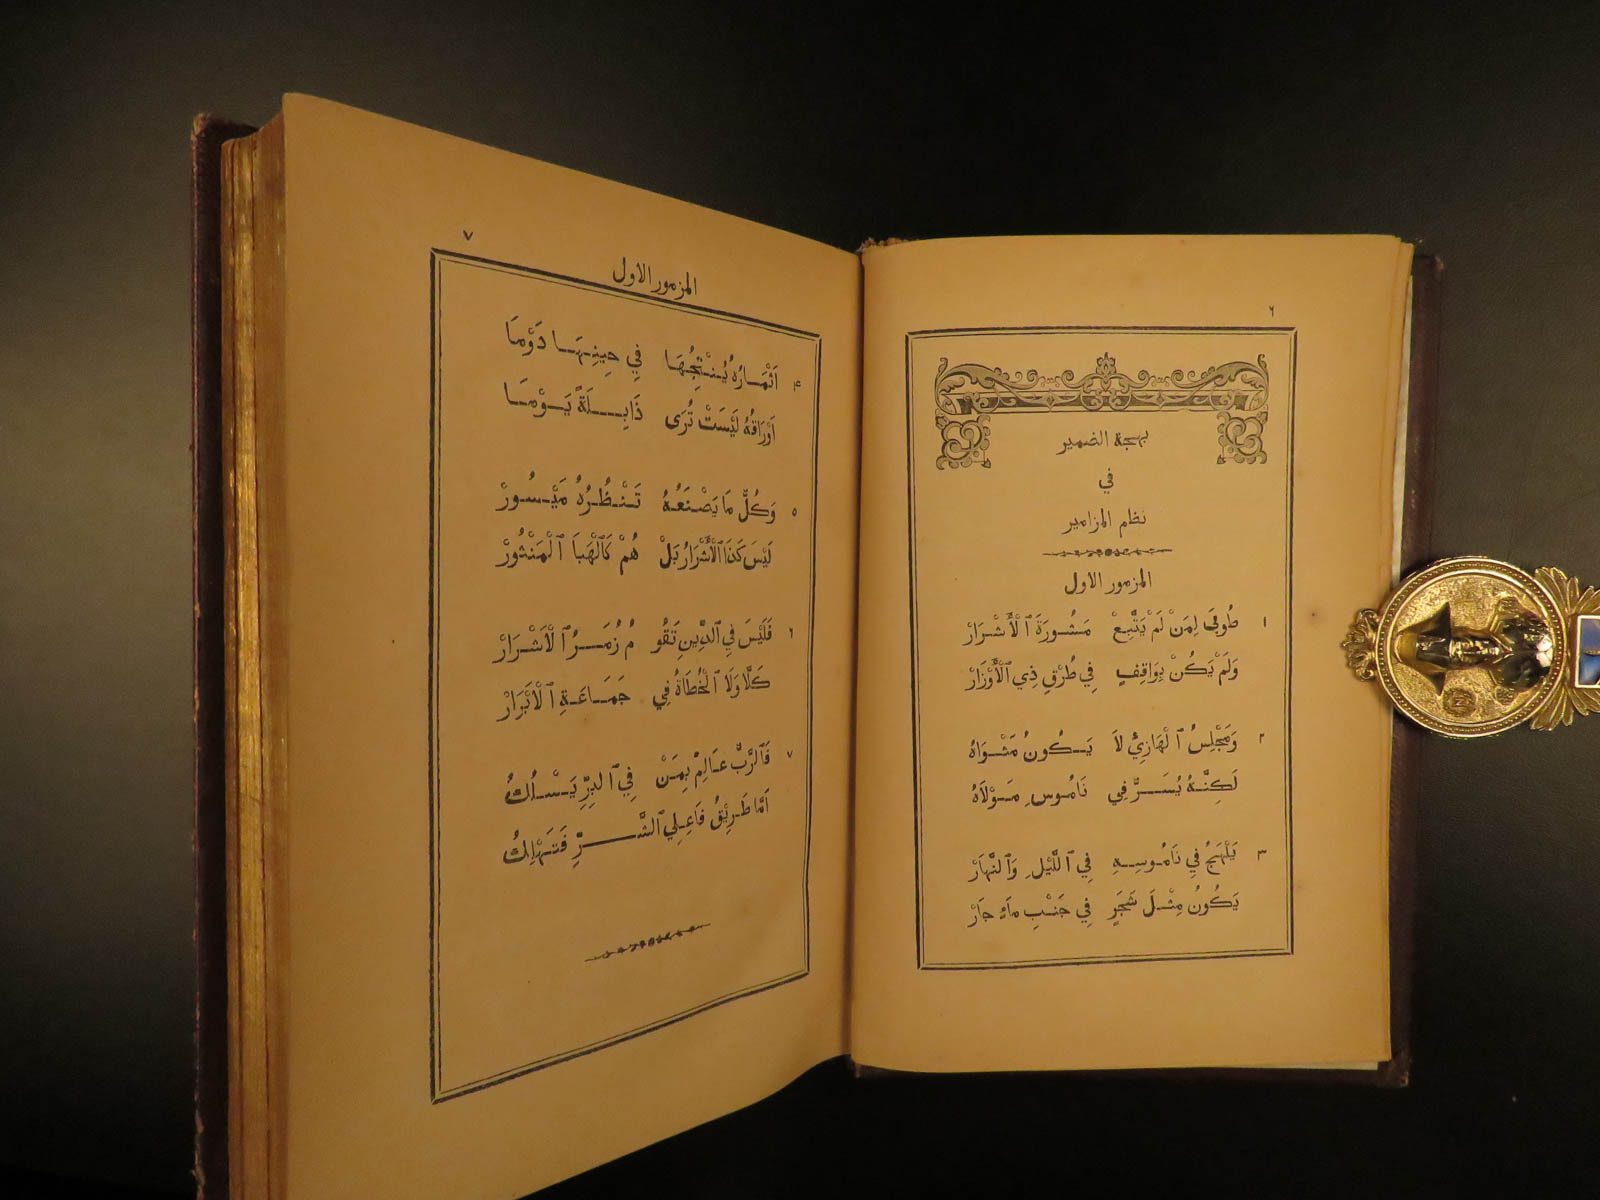 ٦
بهجة الضمير
في
نظم المزامير
المزمور الاول
١ طُوبَى لِمَنْ لَمْ يَتَّبِعْ مَشُورَةَ ٱلْأَشْرَارْ
وَلَمْ يَكُنْ بِوَاقِفٍ فِي طُرْقِ ذِي ٱلْأَوْزَارْ
٢ وَمَجْلِسُ ٱلْهَازِئِ لَا يَكُونُ مَثْوَاهُ
لَكِنَّهُ يُسَرُّ فِي نَامُوسِ مَوْلَاهُ
٣ يَلْهَجُ فِي نَامُوسِهِ فِي ٱللَّيْلِ وَٱلنَّهَارْ
يَكُونُ مِثْلَ شَجَرٍ فِي جَنْبِ مَاءٍ جَارْ
٧
المزمور الاول
٤ اَثْمَارُهُ يُنْتِجُهَا فِي حِينِهَا دَوْمَا
اَوْرَاقُهُ لَيْسَتْ تُرَى ذَابِلَةً يَوْمَا
٥ وَكُلُّ مَا يَصْنَعُهُ تَنْظُرُهُ مَيْسُورْ
لَيْسَ كَذَا ٱلْأَشْرَارُ بَلْ هُمْ كَٱلْهَبَا ٱلْمَنْثُورْ
٦ فَلَيْسَ فِي ٱلدِّينِ تَقُو مُ زُمَرُ ٱلْأَشْرَارْ
كَلَّا وَلَا ٱلْخُطَاةُ فِي جَمَاعَةِ ٱلْأَبْرَارْ
٧ فَٱلرَّبُّ عَالِمٌ بِمَنْ فِي ٱلْبِرِّ يَسْلُكُ
اَمَّا طَرِيقُ فَاعِلِي ٱلشَّرِّ فَتَهْلِكُ